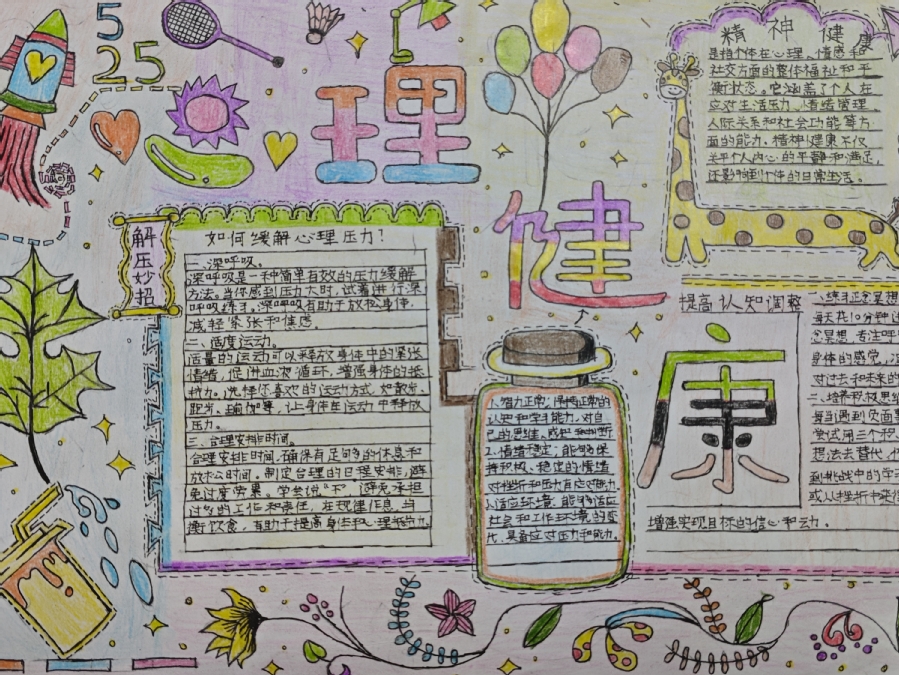 5
25
理
健
康
精神健康
是指个体在心理、情感和
社交方面的整体福祉和平
衡状态。它涵盖了个人在
应对生活压力、情绪管理、
人际关系和社会功能等方
面的能力。精神健康不仅
关乎个人内心的平静和满足,
还影响到个体的日常生活。
解压妙招
如何缓解心理压力?
一、深呼吸。
深呼吸是一种简单有效的压力缓解
方法。当你感到压力大时,试着进行深
呼吸练习。深呼吸有助于放松身体,
减轻紧张和焦虑。
二、适度运动。
适量的运动可以释放身体中的紧张
情绪,促进血液循环,增强身体的抵
抗力。选择你喜欢的运动方式,如散步、
跑步、瑜伽等,让身体在运动中释放
压力。
三、合理安排时间。
合理安排时间,确保有足够多的休息和
放松时间。制定合理的日程安排,避
免过度劳累。学会说“不”,避免承担
过多的工作和责任,在规律作息、均
衡饮食,有助于提高身体和心理抵抗力。
1、智力正常,保持正常的
认知和学习能力,对自
己的思维、感知和判断
2、情绪稳定;能够保
持积极、稳定的情绪
对挫折和压力有应对能力
3、适应环境,能够适应
社会和工作环境的变
化,具备应对压力和能力。
提高认知调整
一、练习正念冥想
每天花10分钟进
念冥想,专注呼
身体的感觉,
对过去和未来的
二、培养积极思维
每当遇到负面
尝试用三个积
想法去替代,
到挑战中的学
或从挫折中来
增强实现目标的信心和动力。